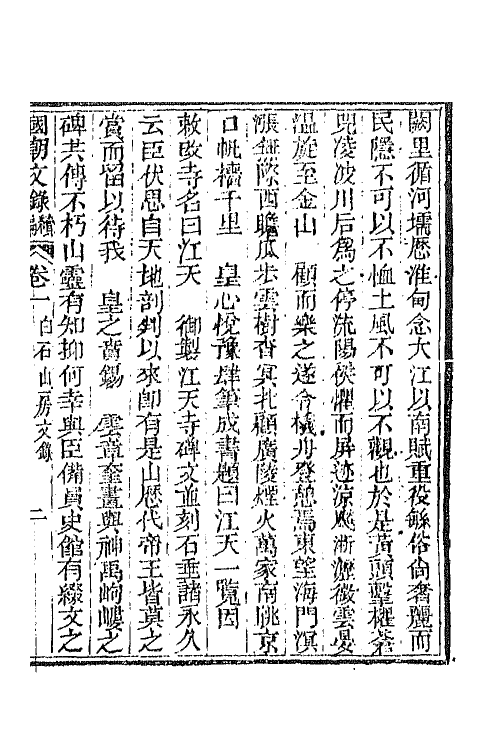 闕里循河壖歷淮甸念大江以南賦重役繇俗尚奢麗而
民隱不可以不恤土風不可以不觀也於是黃頭擊櫂蒼
兕凌波川后為之停流陽侯懼而屏迹涼飈淅瀝微雲曼
溫旋至金山　顧而樂之遂令檥舟登憩焉東望海門溟
漲無際西瞻瓜步雲樹杳冥北顧廣陵煙火萬家南眺京
口帆檣千里　皇心悅豫肆筆成書題曰江天一覽因
敕改寺名曰江天　御製江天寺碑文並刻石垂諸永久
云臣伏思自天地剖判以來卽有是山歷代帝王皆莫之
賞而留以待我　皇之賚錫　雲章奎畫與神禹岣嶁之
碑共傳不朽山靈有知抑何幸與臣備員史館有綴文之
國朝文錄續編　卷一　白石山房文錄　二